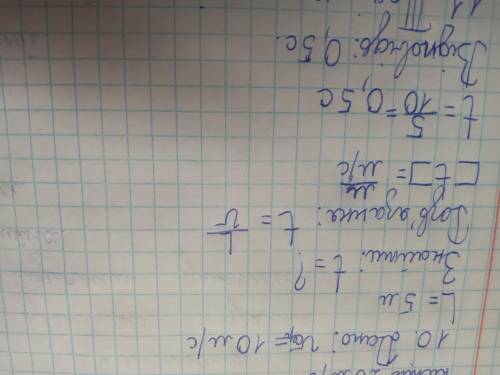 10. Дано: vср = 10 м/с
L = 5 м
Знайти: t = ?
Розв'язання: t = L/v
[t] = м/м/с
t = 5/10 = 0,5 с
Відповідь: 0,5 с.